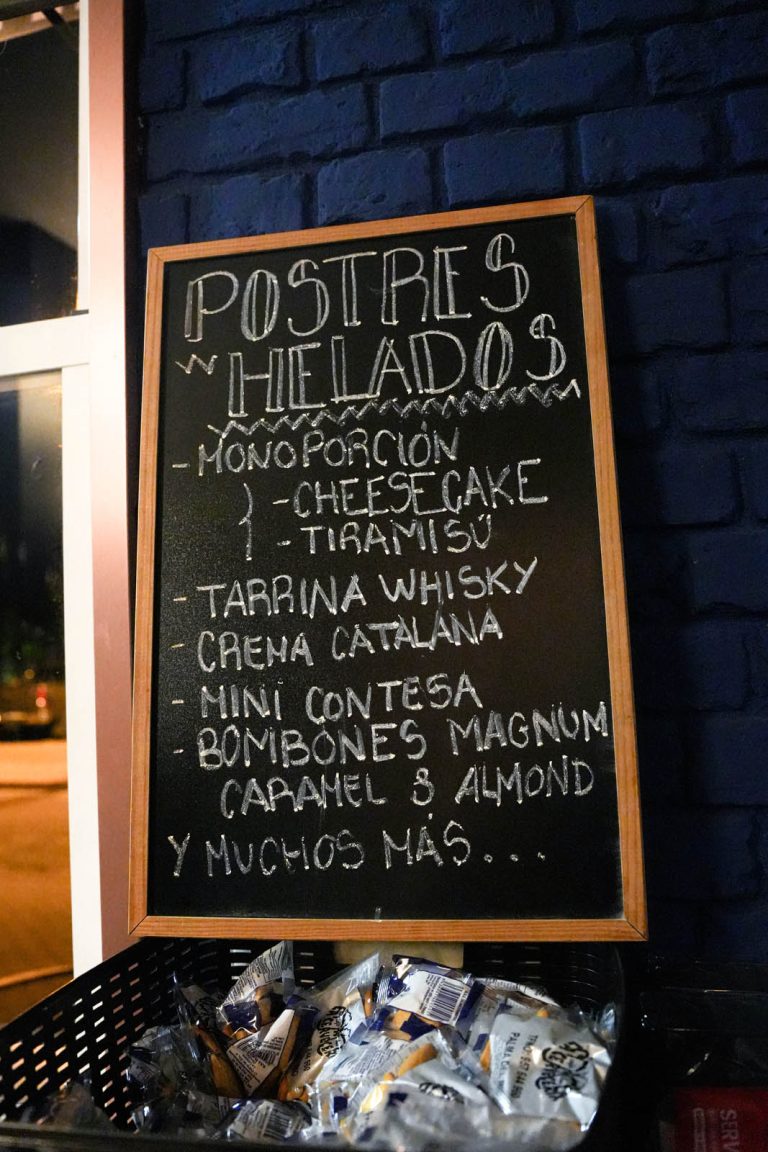 POSTRES
HELADOS
- MONOPORCIÓN
- CHEESECAKE
- TIRAMISÚ
- TARRINA WHISKY
- CREMA CATALANA
- MINI CONTESA
- BOMBONES MAGNUM
CARAMEL & ALMOND
Y MUCHOS MÁS....
PALMA
SERV